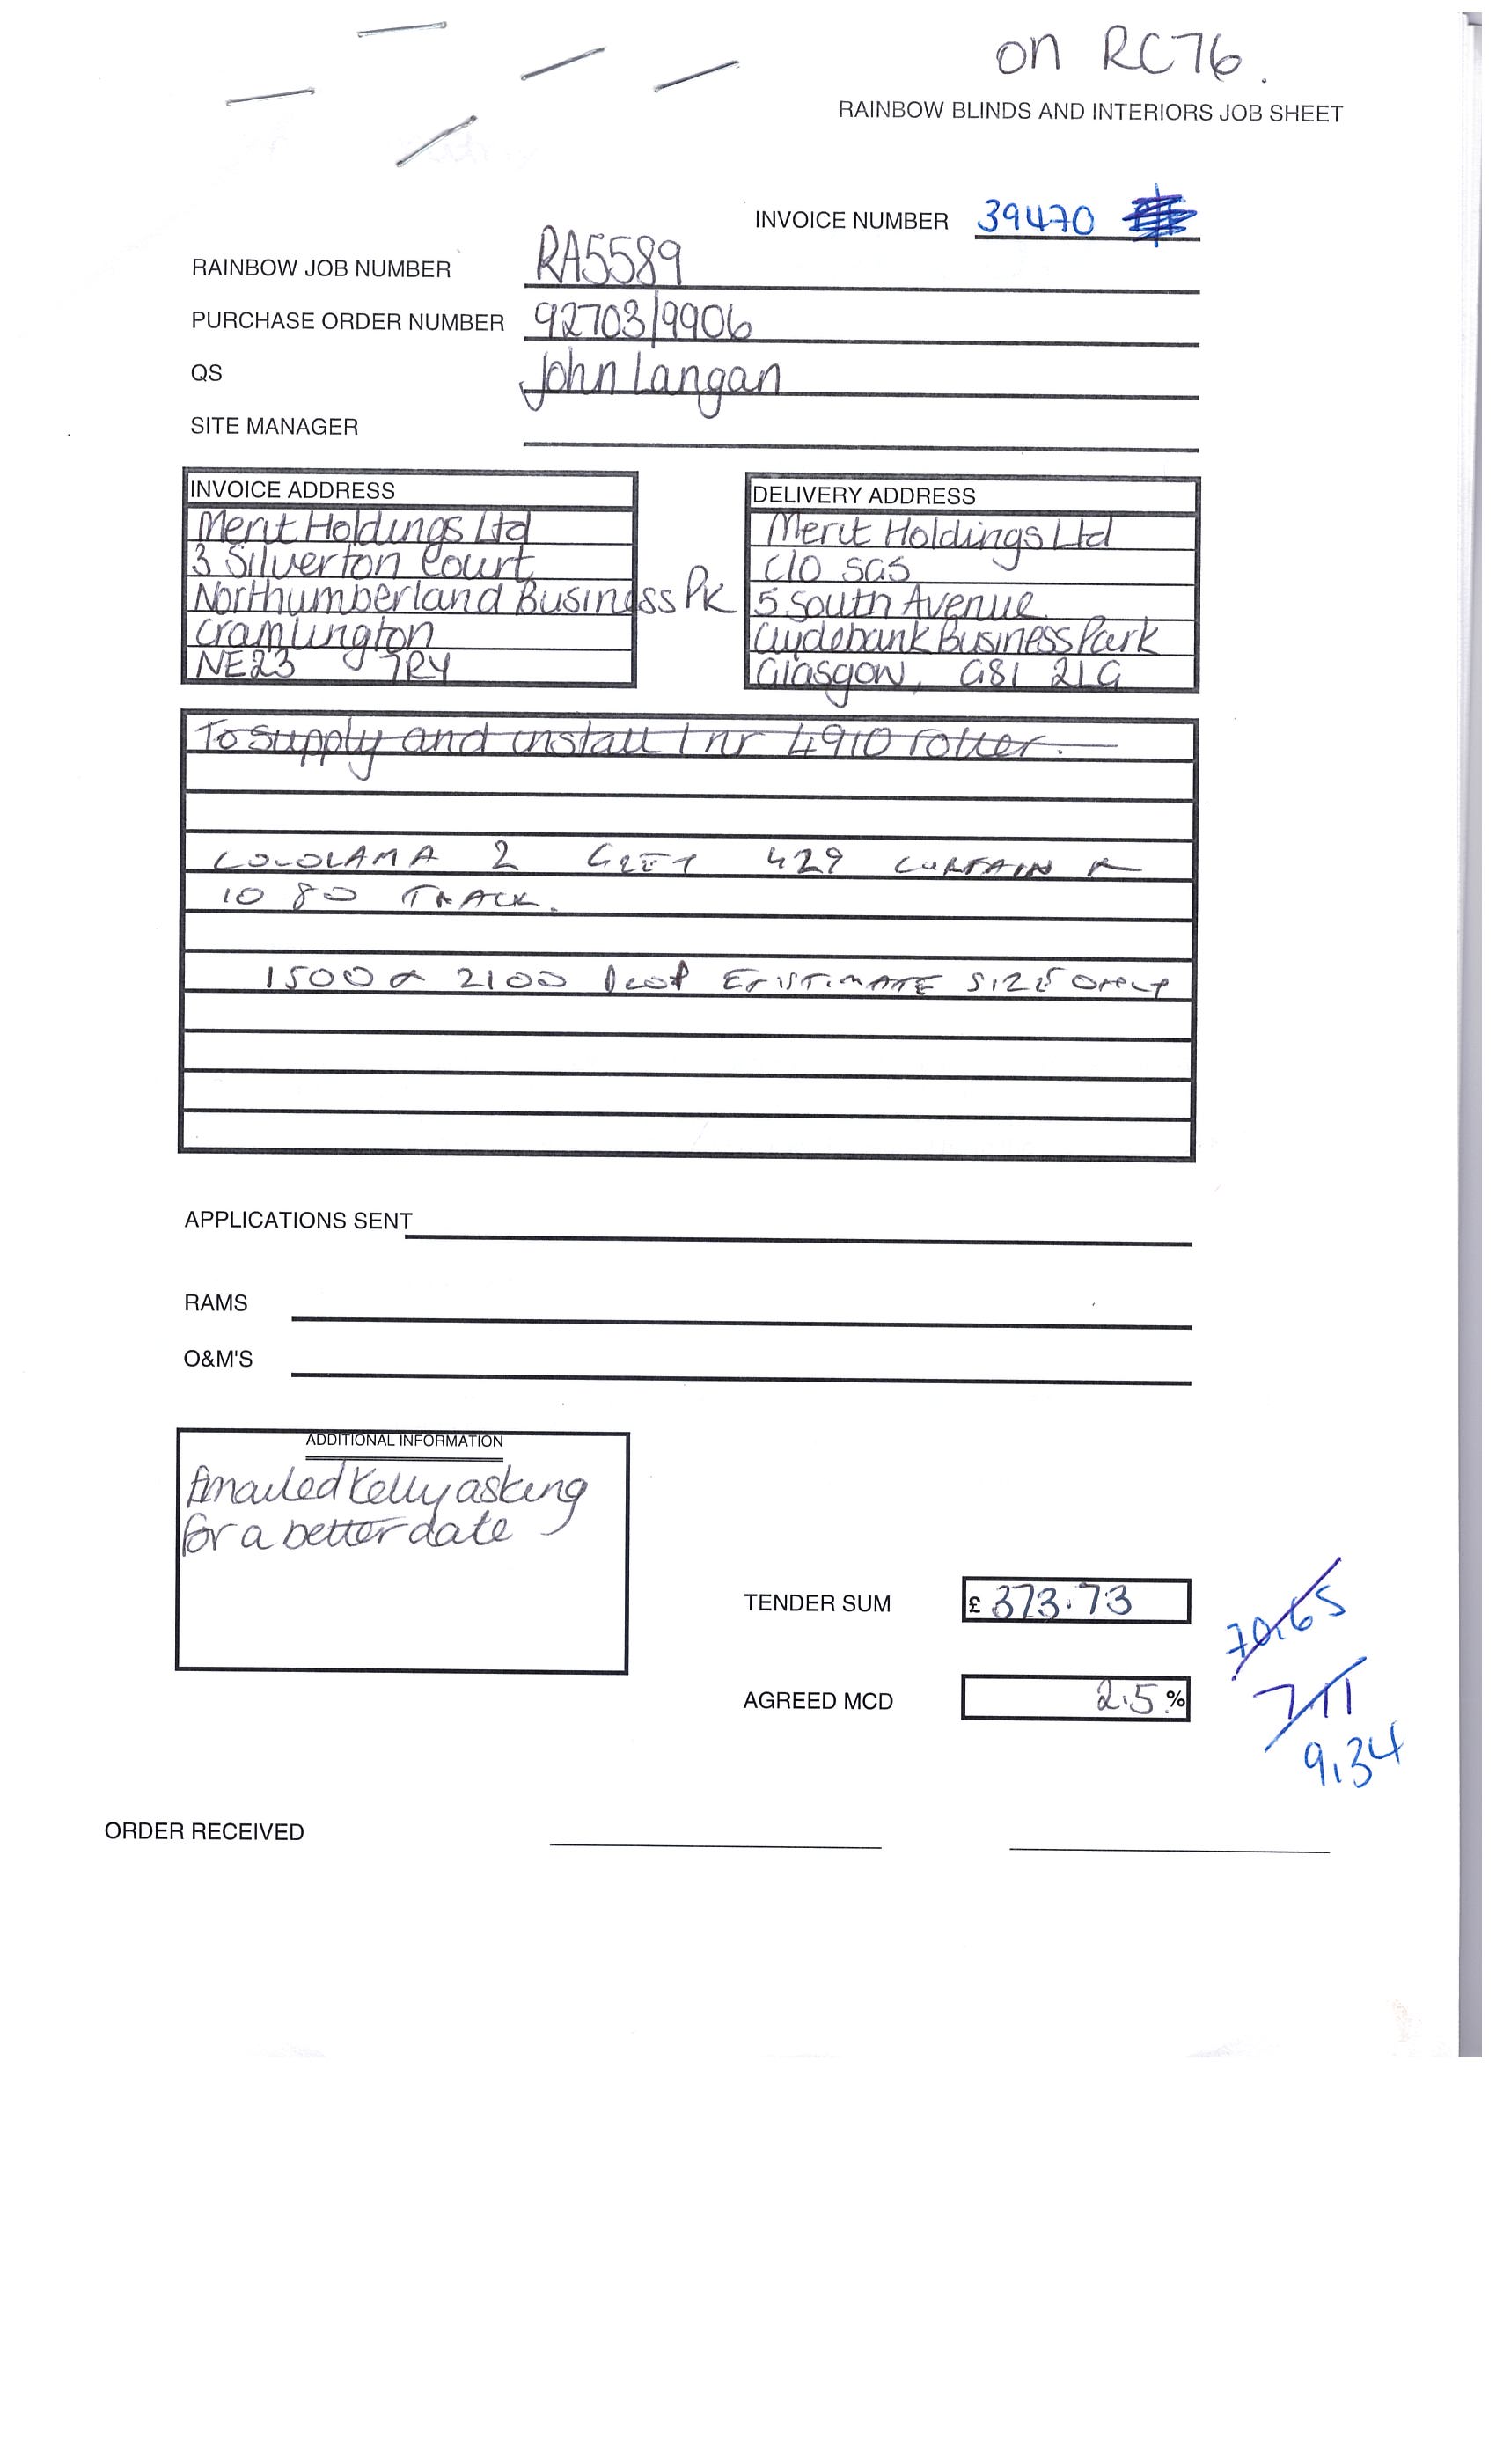 on RC76.
RAINBOW BLINDS AND INTERIORS JOB SHEET
INVOICE NUMBER 39470
RAINBOW JOB NUMBER RA5589
PURCHASE ORDER NUMBER 92703/9906
QS John Langan
SITE MANAGER
INVOICE ADDRESS
Merit Holdings Ltd
3 Silverton Court
Northumberland Business Pk
Cramlington
NE23 7RY
DELIVERY ADDRESS
Merit Holdings Ltd
C/O SGS
5 South Avenue
Clydebank Business Park
Glasgow, G81 2LG
To supply and install 1 nr 4910 roller.
2 GREY 429 CURTAIN
1080 TRACK.
1500 2100 DROP SIZE ONLY
APPLICATIONS SENT
RAMS
O&M'S
ADDITIONAL INFORMATION
Emailed Kelly asking
for a better date
TENDER SUM £ 373.73
70.65
AGREED MCD 2.5 %
9.34
ORDER RECEIVED